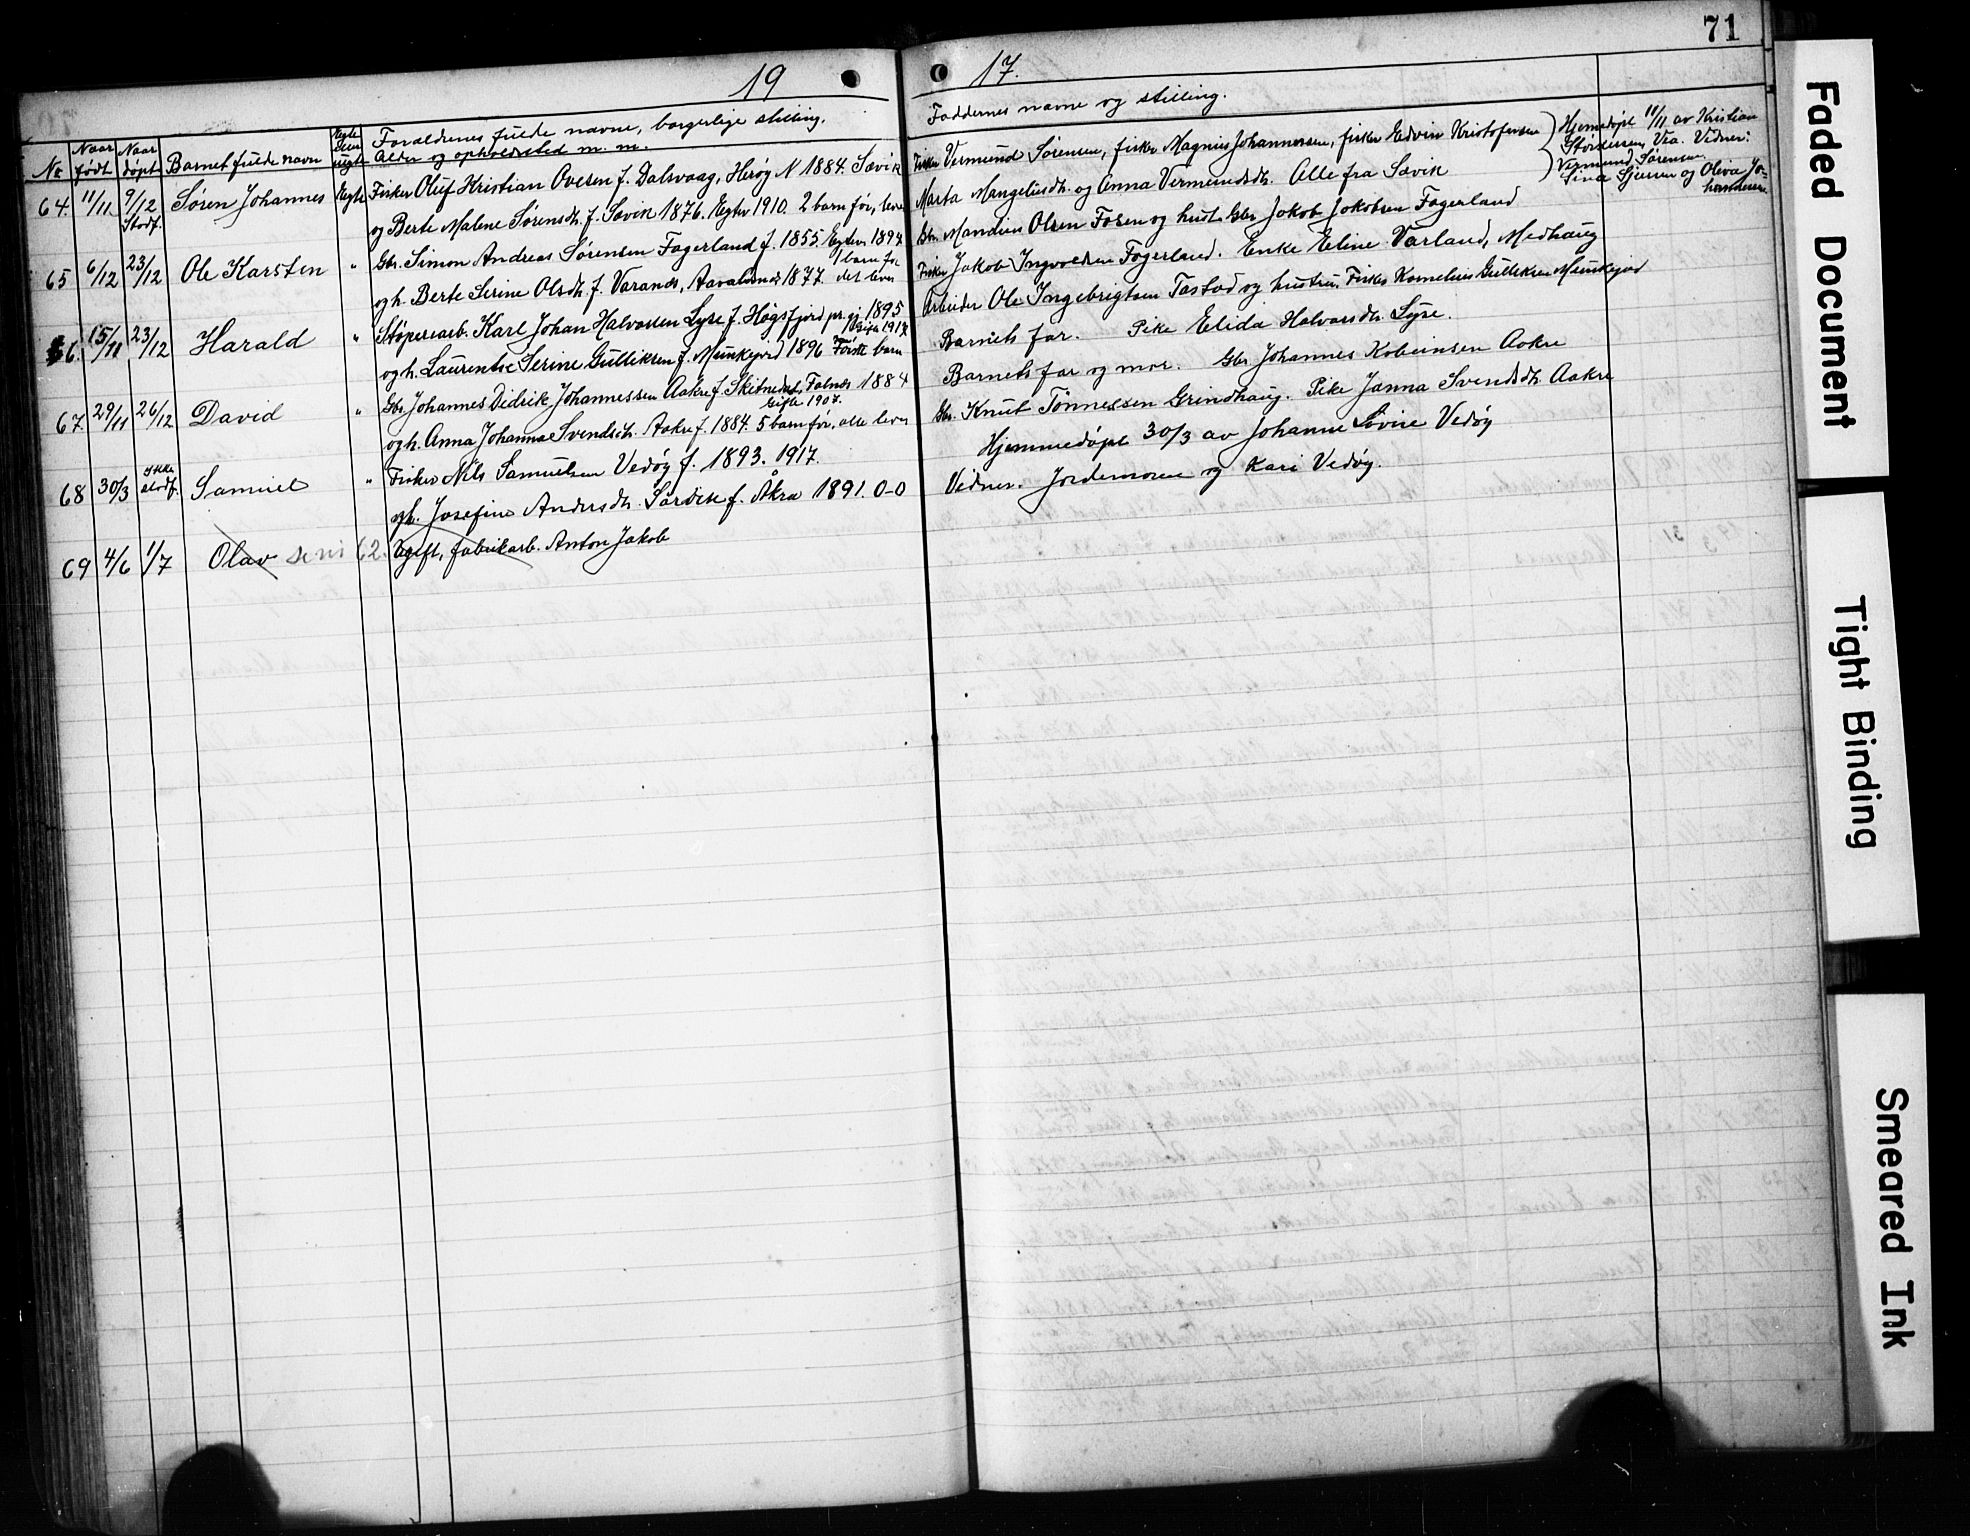 71
19 17.
No Naar født Naar døpt Barnets fulde navn Egte eller uegte Foraldrenes fulde navne, borgerlige stilling, Alder og opholdssted m. m. Faddernes navne og stilling.
64. 11/11 9/12 Stodf. Søren Johannes Egte Fisker Oluf Kristian Ovesen f. Dalsvaag, Herøy N 1884. Sævik
og Berte Malene Sørensdtr. f. Sævik 1876. Egtev 1910. 2 barn før, leve
Fisker Vermund Sørensen, fisker Magnus Johannessen, fisker Edvin Kristofersen
Marta Mangelusdtr. og Anna Vermundsdtr. Alle fra Sævik
Hjemmedøpt 11/11 av Kristian
Stordersen, Vra. Vidner:
Vermund Sørensen
Sina Sjursen og Oliva Jo-
hannesen
65 6/12 23/12 Ole Karsten " Gbr. Simon Andreas Sørensen Fagerland f. 1855. Egtev. 1894
og h. Berte Serine Olsdtr. f. Varanes, Aavaldsnes 1877. 1 barn før det lever
Gbr. Mandius Olsen Fosen og hust. Gbr Jakob Jakobsen Fagerland
Fisker Jakob Ingvoldsen Fagerland. Enke Eline Varland, Medhaug
66. 15/11 23/12 Harald " Støperiarb. Karl Johan Halvorsen Lyse f. Høgsfjord pr.gj 1895
og h. Laurentse Serine Gulliksen f. Munkejord 1896 Gifte 1917 Første barn
Arbeider Ole Ingebrigtsen Tastad og hustru. Fisker Kornelius Gulliksen Munkejord
Barnets far. Pike Elida Halvorsdtr. Lyse.
67 29/11 26/12 David " Gbr Johannes Didrik Johannessen Aakre f. Skitnedal, Falnes 1884
og h. Anna Johanna Svendsdtr. Aakre f. 1884. Gifte 1907. 5 barn før, alle lever
Barnets far og mor. Gbr Johannes Kobeinsen Aakre
Gbr. Knut Tønnesen Grindhaug. Pike Janna Svendsdtr Aakre
68 30/3 Ikke stodf. Samuel " Fisker Nils Samuelsen Vedøy f. 1893. 1917.
og h. Josefine Andersdtr. Sørvik f. Åkra 1891. 0-0
Hjemmedøpt 30/3 av Johanne Lovise Vedøy
Vidner. Jordemoren og Kari Vedøy.
69 4/6 1/7 Olav se nr 62. Ugift, fabrikarb. Anton Jakob
Faded Document
Tight Binding
Smeared Ink